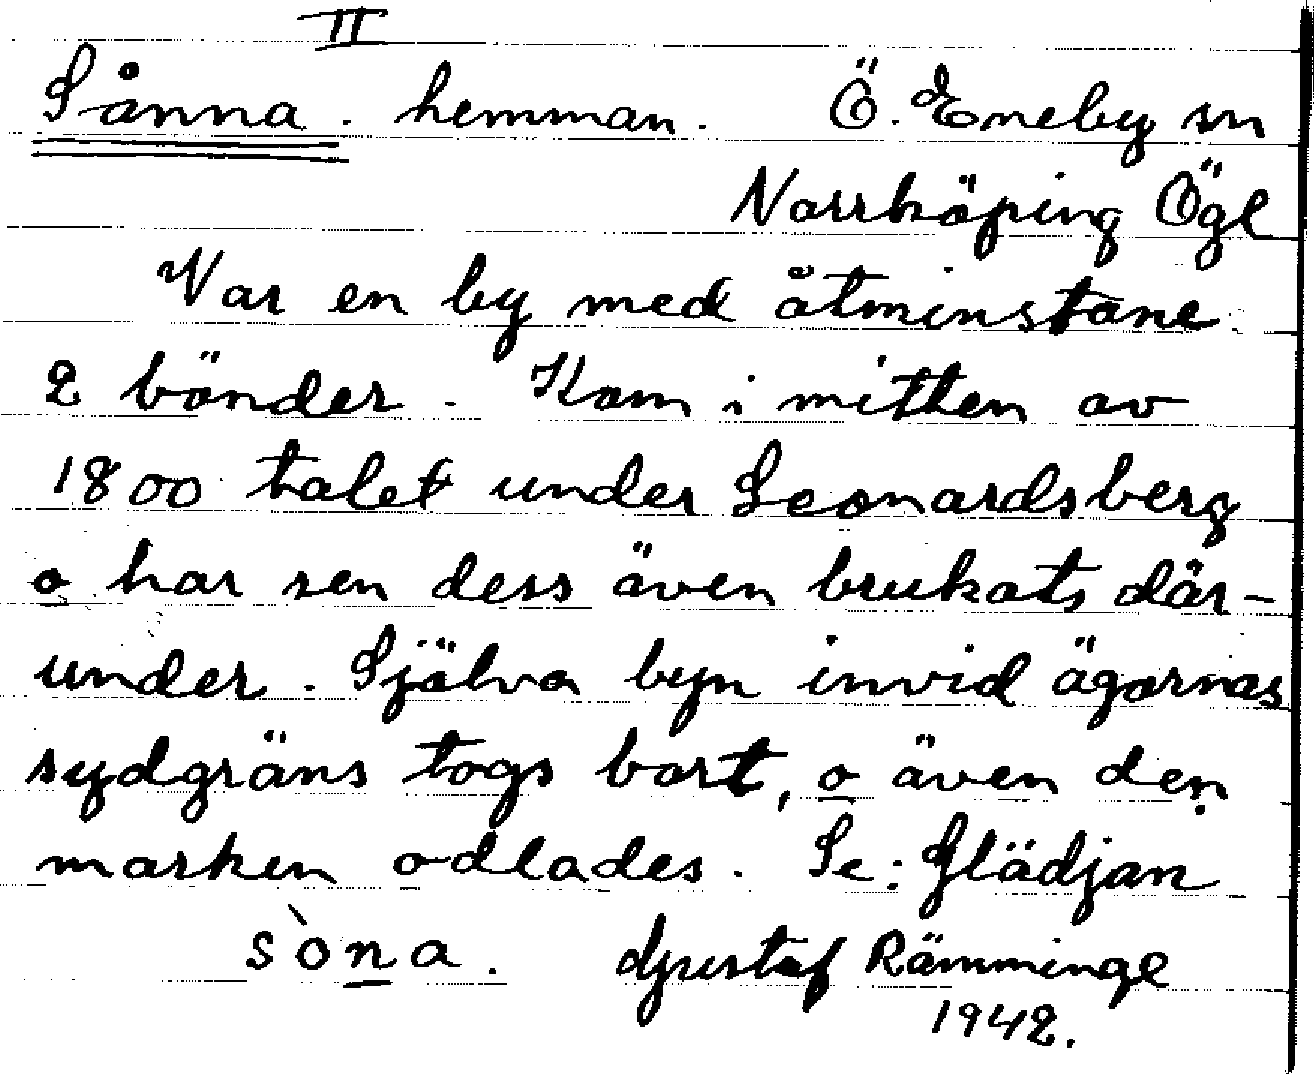 II
Sånna. hemman. Ö. Eneby sn
Norrköping Ögl
Var en by med åtminstone
2 bönder. Kom i mitten av
1800 talet under Leonardsberg
o har sen dess även brukats där-
under. Själva byn invid ägornas
sydgräns togs bort, o även den
marken odlades. Se: Glädjan
sòna. Gustaf Rämminge
1942.